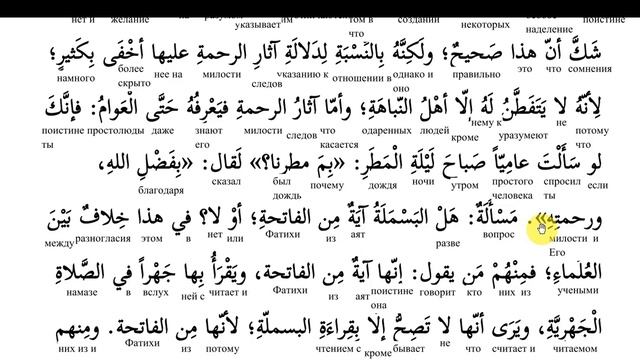 нет и желание указывает им том в что создании некоторых наделение поистине
شَكَّ أنّ هذا صَحيحٌ؛ ولَكِنَّهُ بِالنّسْبَةِ لِدَلالَةِ آثارِ الرحمةِ عليها أخْفَى بِكَثيرٍ؛
намного более скрыто нее на милости следов указанию к отношении в однако и оно правильно это что сомнения
لِأنّهُ لا يَتَفَطَّنُ لَهُ إلّا أهْلُ النّباهَةِ؛ وأمّا آثارُ الرحمةِ فيَعْرِفُهُ حَتَّى الْعَوامُ: فإنَّكَ
поистине ты простолюды даже знают его милости следов что касается одаренных людей кроме нему к уразумеют не потому что
لو سَألْتَ عامِيّاً صَباحَ لَيْلَةِ الْمَطَرِ: «بِمَ مطرنا؟» لَقال: «بِفَضْلِ اللهِ،
благодаря сказал был дождь почему дождя ночи утром простого человека спросил ты если
ورحمتِهِ». مَسْألَةٌ: هَلْ البَسْمَلَةُ آيَةٌ مِن الفاتحةِ؛ أوْ لا؟ في هذا خِلافٌ بَيْنَ
между разногласия этом в нет или Фатихи из аят разве вопрос милости и Его
العُلَماءِ؛ فمِنْهُمْ مَن يقول: إنّها آيةٌ مِن الفاتحة، ويَقْرَأُ بِها جَهْراً في الصَّلاةِ
намазе в вслух ней с читает и Фатихи из аят поистине она говорит кто них из учеными
الْجَهْرِيَّةِ، ويَرَى أنّها لا تَصِحُّ إلا بِقِراءَةِ البسملّةِ؛ لأنّها مِن الفاتحة. ومنهم
них из и Фатихи из потому чтением с кроме бывает не что считает и читаемом